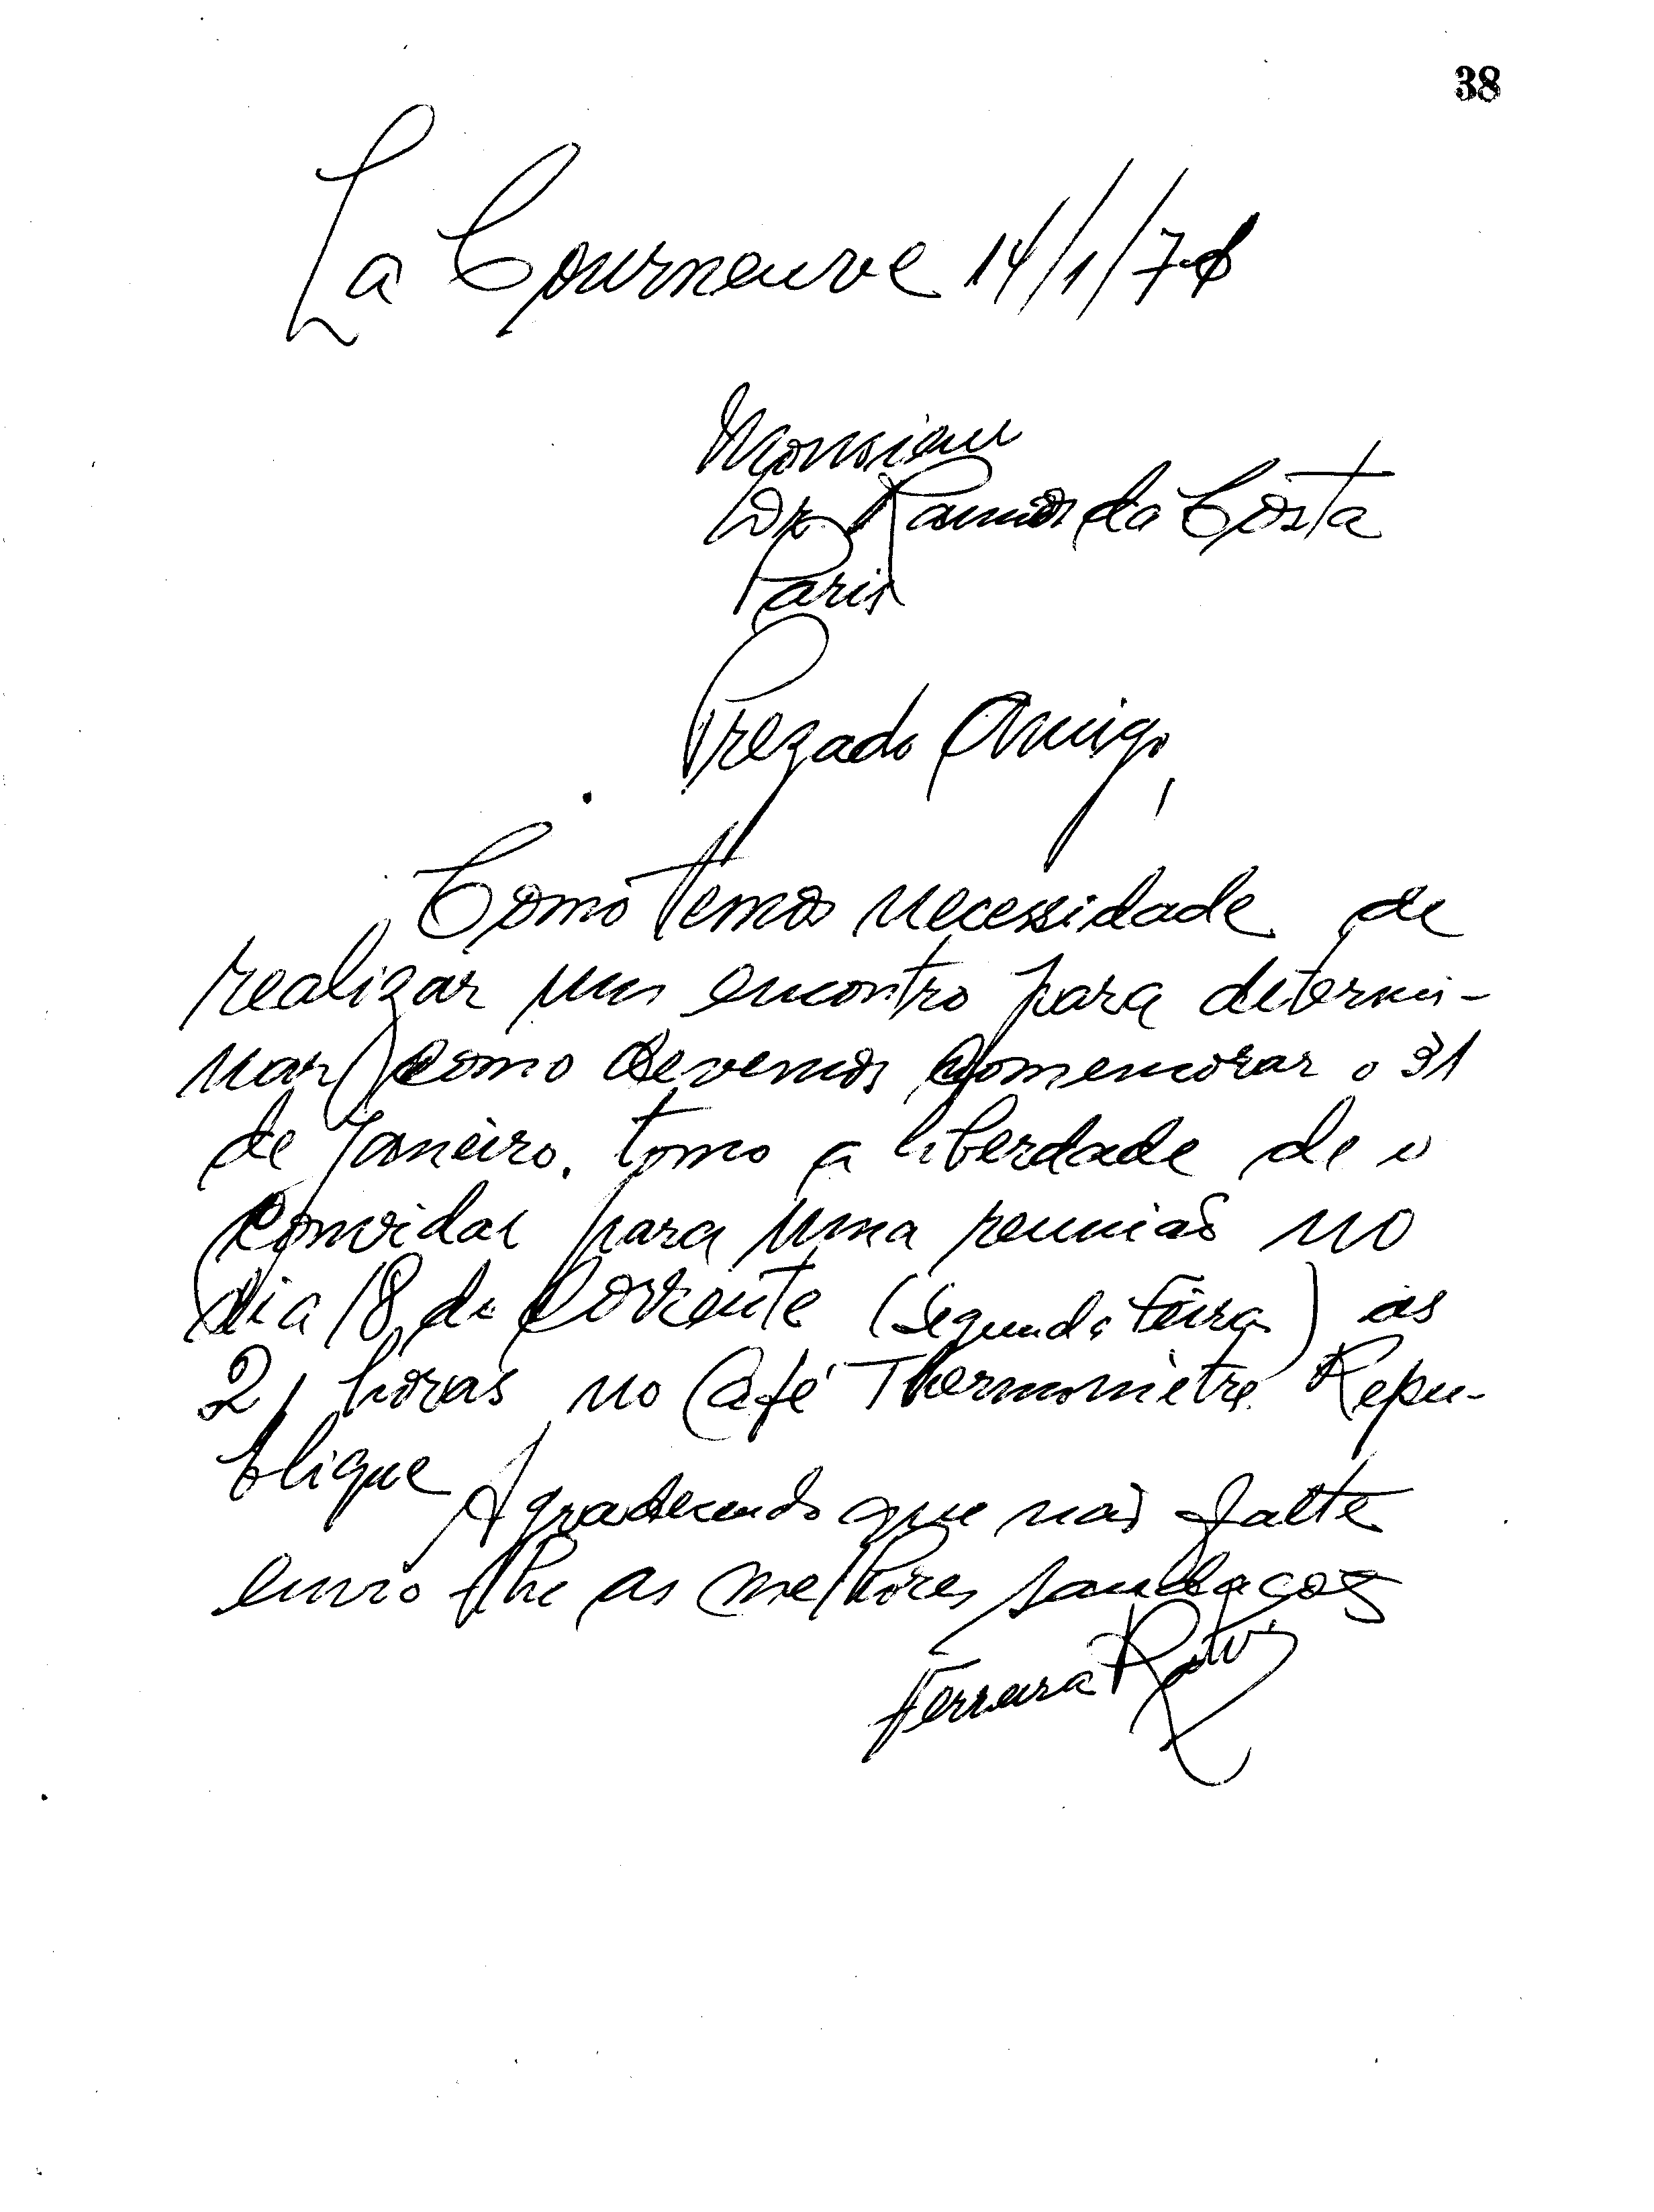 38
La Courneuve 14/1/71
Monsieur
Dr. Ramos da Costa
Paris
Prezado Amigo,
Como temos necessidade de
realizar um encontro para determi-
nar como devemos comemorar o 31
de Janeiro, tomo a liberdade de o
convidar para uma reunião no
dia 18 do corrente (segunda feira) às
21 horas no Café Thermomètre Repu-
blique
Agradecendo que não falte
envio-lhe as melhores saudações
Ferreira